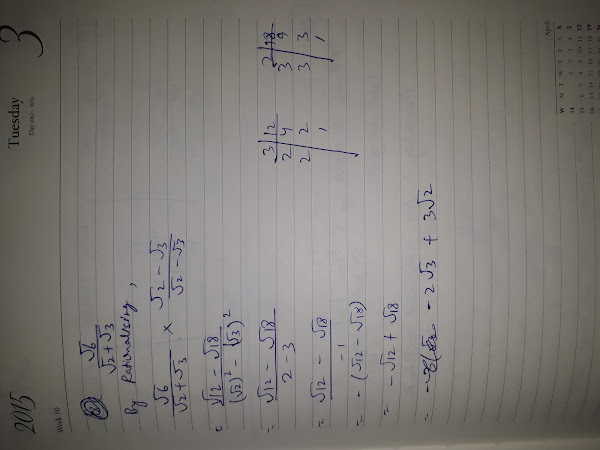 2015
Week 10
Tuesday
Day (062 - 303)
3
April
W M T W T F S S
√6 / (√2 + √3)
By Rationalising,
√6 / (√2 + √3) × (√2 - √3) / (√2 - √3)
= (√12 - √18) / ((√2)² - (√3)²)
= (√12 - √18) / (2 - 3)
= (√12 - √18) / -1
= - (√12 - √18)
= - √12 + √18
= - 2√3 + 3√2
3 | 12
2 | 4
2 | 2
1
2 | 18
3 | 9
3 | 3
1